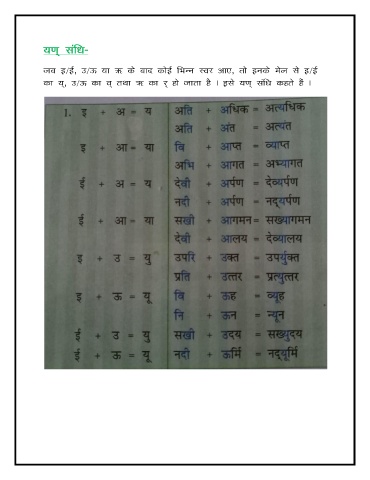 यण् संधि-
जब इ/ई, उ/ऊ या ऋ के बाद कोई भिन्न स्वर आए, तो इनके मेल से इ/ई
का य्, उ/ऊ का व् तथा ऋ का र् हो जाता है । इसे यण् संधि कहते हैं ।
1. इ + अ = य अति + अधिक = अत्यधिक
अति + अंत = अत्यंत
इ + आ = या वि + आप्त = व्याप्त
अभि + आगत = अभ्यागत
ई + अ = य देवी + अर्पण = देव्यर्पण
नदी + अर्पण = नद्यर्पण
ई + आ = या सखी + आगमन = सख्यागमन
देवी + आलय = देव्यालय
इ + उ = यु उपरि + उक्त = उपर्युक्त
प्रति + उत्तर = प्रत्युत्तर
इ + ऊ = यू वि + ऊह = व्यूह
नि + ऊन = न्यून
ई + उ = यु सखी + उदय = सख्युदय
ई + ऊ = यू नदी + ऊर्मि = नद्यूर्मि